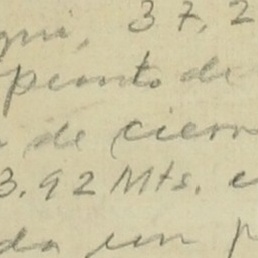 qui, 37,2
pianto de
de cierr
3.92 Mts. e
da un p